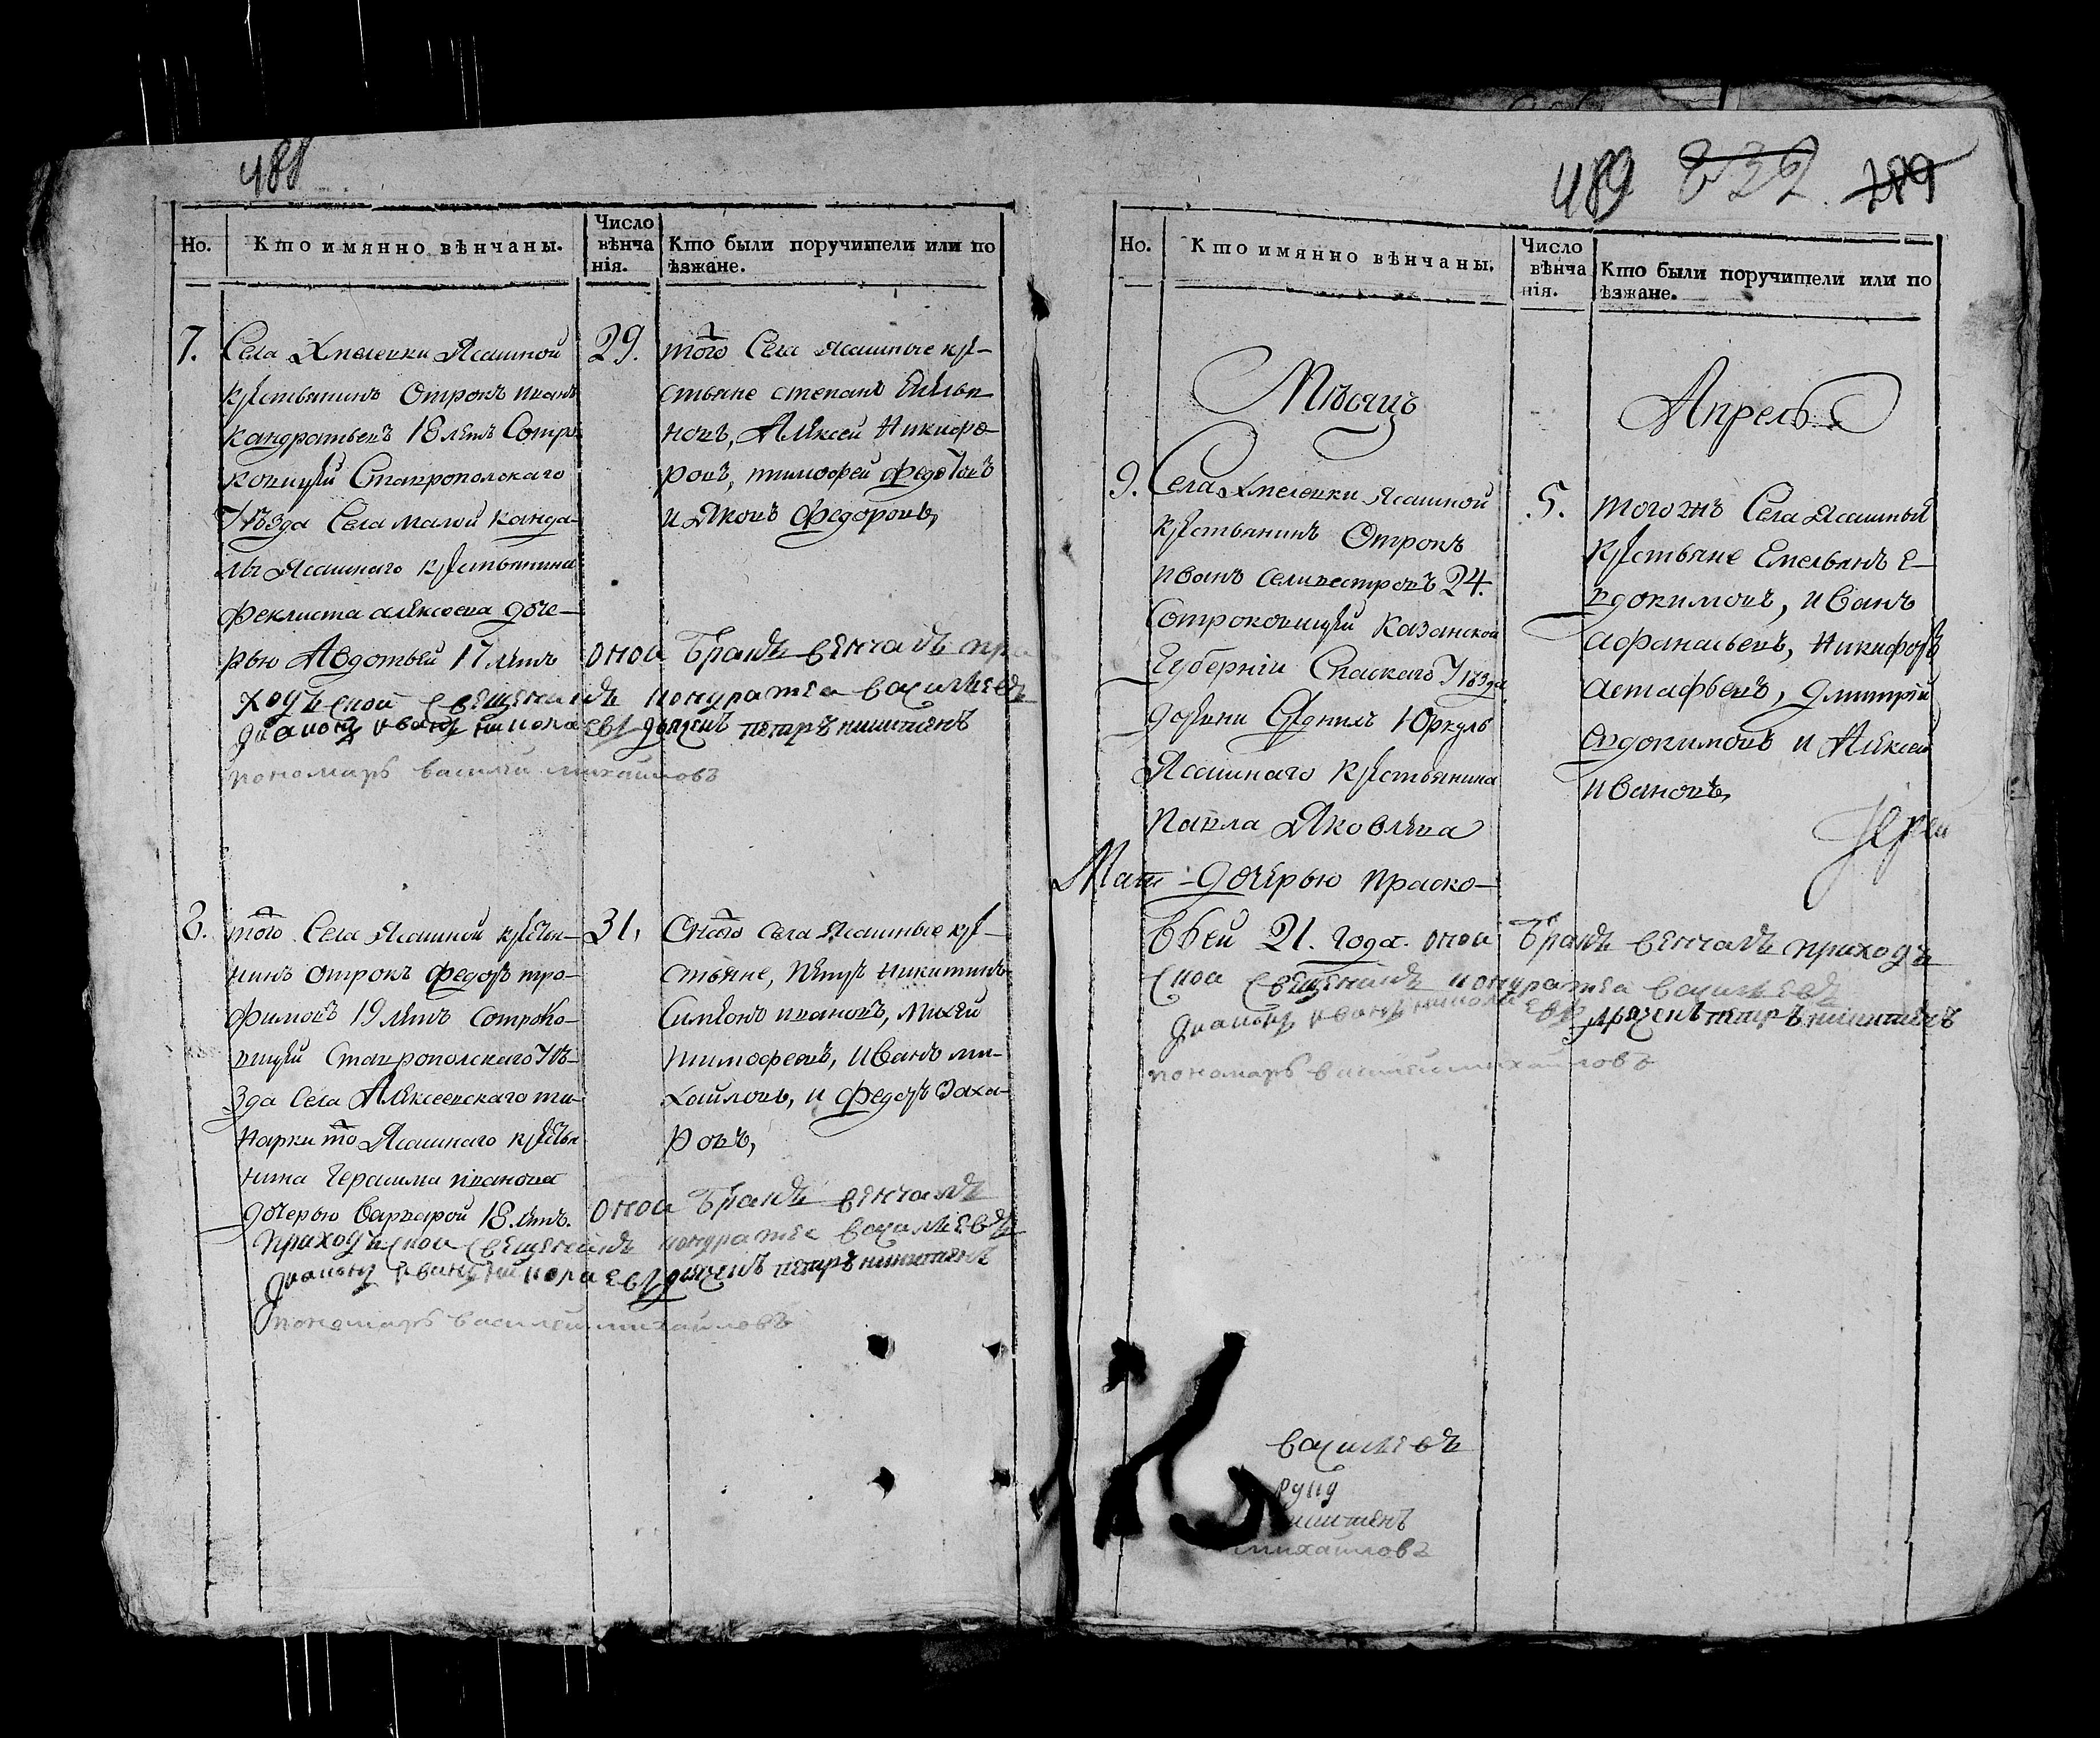 488
Но.
Кто имянно вѣнчаны.
Число
вѣнча
нія.
Кто были поручители или по
ѣзжане.
7.
Села Хмелевки Ясашной
крестьянинъ Отрокъ иванъ
кандратьевъ 18 летъ Сотро
ковицеи Ставропольскаго
Уѣзда Села малой канда-
лы Ясашнаго крестьянина
феклиста алексеева доче-
рью Авдотьей 17 летъ
29.
того Села Ясашные кре-
стьяне степанъ Емелья
новъ, Алексеи Никифо-
ровъ, тимофеи федотовъ
и Яковъ Федоровъ,
оной бракъ венчалъ при
ходъской священикъ кондратеи василиевъ
диаконъ иванъ николаевъ дьячекъ петръ никитинъ
пономаръ василеи михаиловъ
8.
того Села Ясашной крестья-
нинъ отрокъ федоръ тро-
фимовъ 19 летъ сотроко-
вицеи Ставрополскаго Уѣ-
зда Села Алексеевскаго ти
нарки то Ясашнаго крестья
нина Герасима иванова
дочерью варварой 18. летъ.
31,
Онаго села Ясашные кре-
стьяне, Петръ Никитинъ
Симионъ ивановъ, михеи
тимофеевъ, иванъ ми-
хайловъ, и федоръ Заха-
ровъ,
оной бракъ венчалъ
приходъской священикъ кондратеи василиевъ
диаконъ иванъ николаевъ дьячекъ петръ никитинъ
пономаръ василеи михаиловъ
489 232. 289
Но.
Кто имянно вѣнчаны.
Число
вѣнча
нія.
Кто были поручители или по
ѣзжане.
Мѣсяцъ
Апрель
9.
Села Хмелевки Ясашной
крестьянинъ Отрокъ
иванъ селивестровъ 24.
Сотроковицеи казанской
Губерніи Спаскаго Уезда
доевни Юркуль
Ясашнаго крестьянина
павла Яковлева
дочерью праско-
вьей 21. года.
5.
тогожъ Села Ясашные
крестьяне Емельянъ е-
вдокимовъ, иванъ
афанасьевъ, Никифоръ
астафьевъ, дмитрій
евдокимовъ и Алексей
ивановъ,
Иереи
оной бракъ венчалъ приходъ
ской священикъ кондратеи василиевъ
диаконъ иванъ николаевъ дьячекъ петръ никитинъ
пономаръ василеи михаиловъ
василиевъ
руку
никитинъ
михаиловъ